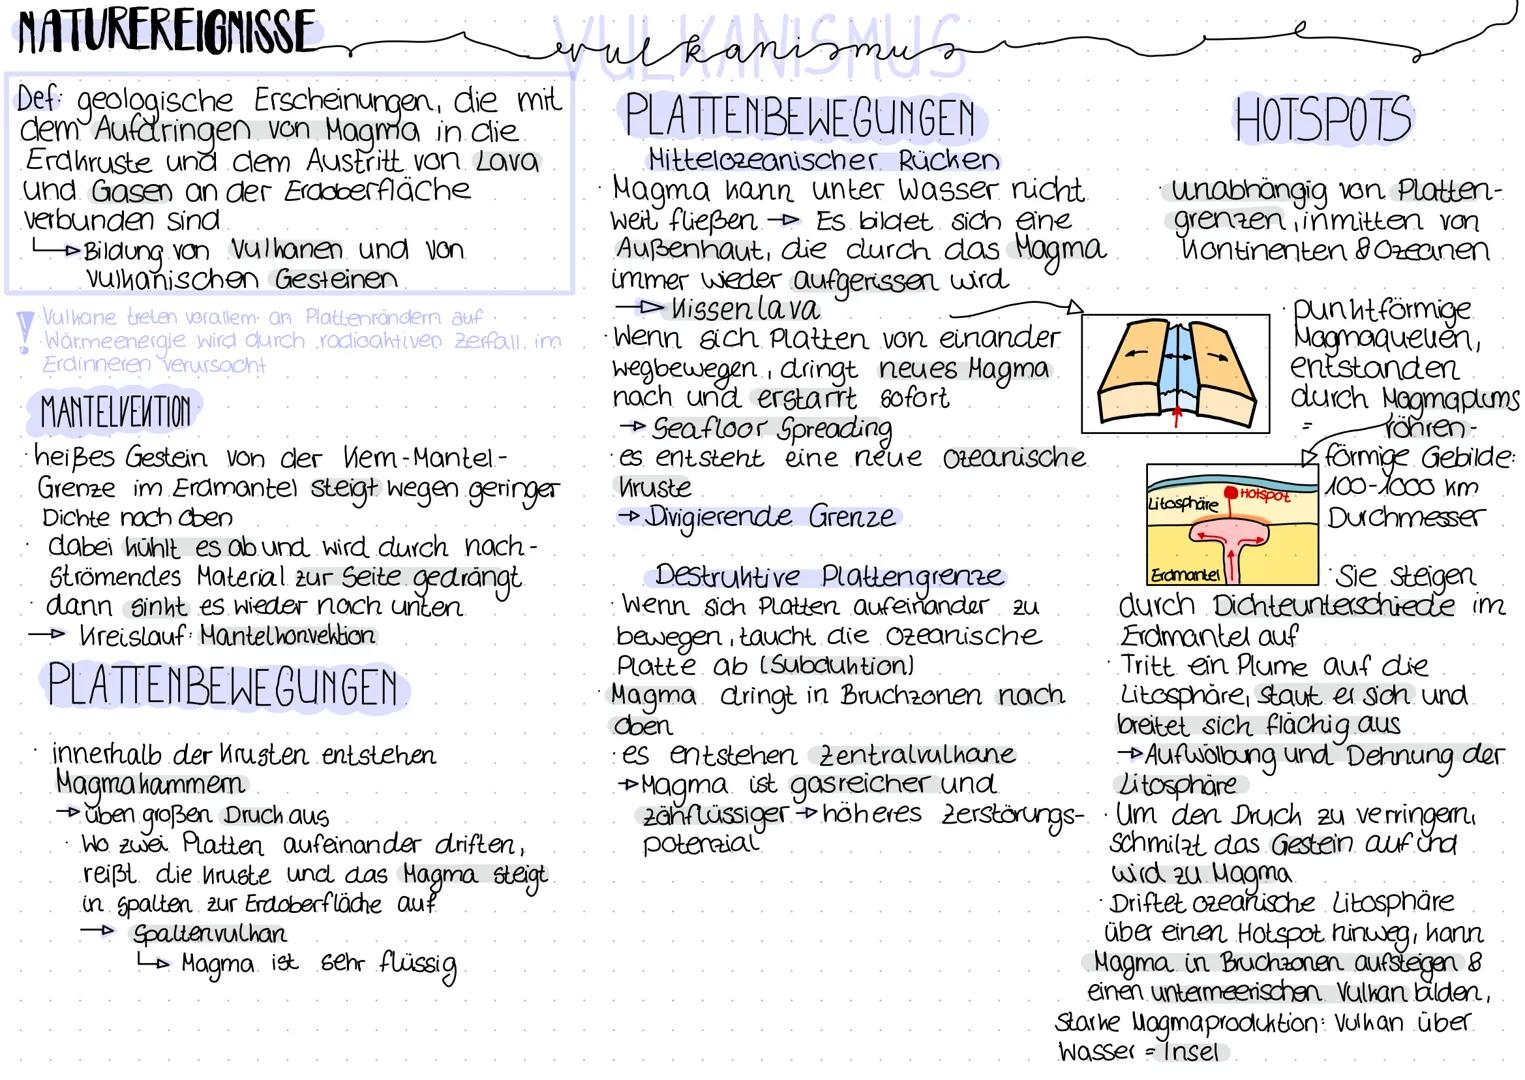 NATUREREIGNISSE
VULKANISMUS
vulkanismus
Def: geologische Erscheinungen, die mit
dem Aufdringen von Magma in die
Erdkruste und dem Austritt von Lava
und Gasen an der Erdoberfläche
verbunden sind
↳ Bildung von Vulkanen und von
vulkanischen Gesteinen
! Vulkane treten vorallem an Plattenrändern auf
Wärmeenergie wird durch radioaktiven Zerfall im
Erdinneren verursacht
MANTELVEKTION
· heißes Gestein von der Kern-Mantel-
Grenze im Erdmantel steigt wegen geringer
Dichte nach oben
· dabei kühlt es ab und wird durch nach-
strömendes Material zur Seite gedrängt
· dann sinkt es wieder nach unten
→ Kreislauf: Mantelkonvektion
PLATTENBEWEGUNGEN
· innerhalb der Krusten entstehen
Magmakammern
→ üben großen Druck aus
· Wo zwei Platten aufeinander driften,
reißt die Kruste und das Magma steigt
in Spalten zur Erdoberfläche auf
→ Spaltenvulkan
↳ Magma ist sehr flüssig
PLATTENBEWEGUNGEN
Mittelozeanischer Rücken
· Magma kann unter Wasser nicht
weit fließen → Es bildet sich eine
Außenhaut, die durch das Magma
immer wieder aufgerissen wird
→ Kissenlava
· Wenn sich Platten von einander
wegbewegen, dringt neues Magma
nach und erstarrt sofort
→ Seafloor Spreading
· es entsteht eine neue ozeanische
Kruste
→ Divigierende Grenze
Destruktive Plattengrenze
· Wenn sich Platten aufeinander zu
bewegen, taucht die ozeanische
Platte ab (Subduktion)
· Magma dringt in Bruchzonen nach
oben
· es entstehen Zentralvulkane
→ Magma ist gasreicher und
zähflüssiger → höheres Zerstörungs-
potenzial
HOTSPOTS
· unabhängig von Platten-
grenzen, inmitten von
Kontinenten & Ozeanen
· punktförmige
Magmaquellen,
entstanden
durch Magmaplums
= röhren-
förmige Gebilde:
100-1000 km
Durchmesser
Litosphäre
Hotspot
Erdmantel
· Sie steigen
durch Dichteunterschiede im
Erdmantel auf
· Tritt ein Plume auf die
Litosphäre, staut er sich und
breitet sich flächig aus
→ Aufwölbung und Dehnung der
Litosphäre
· Um den Druck zu verringern,
schmilzt das Gestein auf und
wird zu Magma
· Driftet ozeanische Litosphäre
über einen Hotspot hinweg, kann
Magma in Bruchzonen aufsteigen &
einen untermeerischen Vulkan bilden,
starke Magmaproduktion: Vulkan über
Wasser = Insel